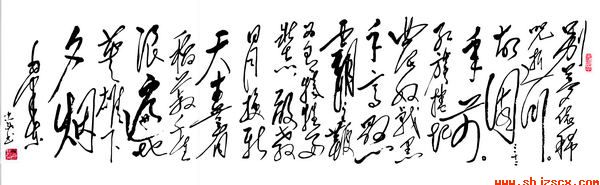 别梦依稀
咒逝川
故园三十二
年前。
红旗卷起
农奴戟黑
手高悬
霸主鞭
为有牺牲多
壮志敢教
日月换新
天喜看
稻菽千重
浪遍地
英雄下
夕烟
毛泽东
www.shizscx.com